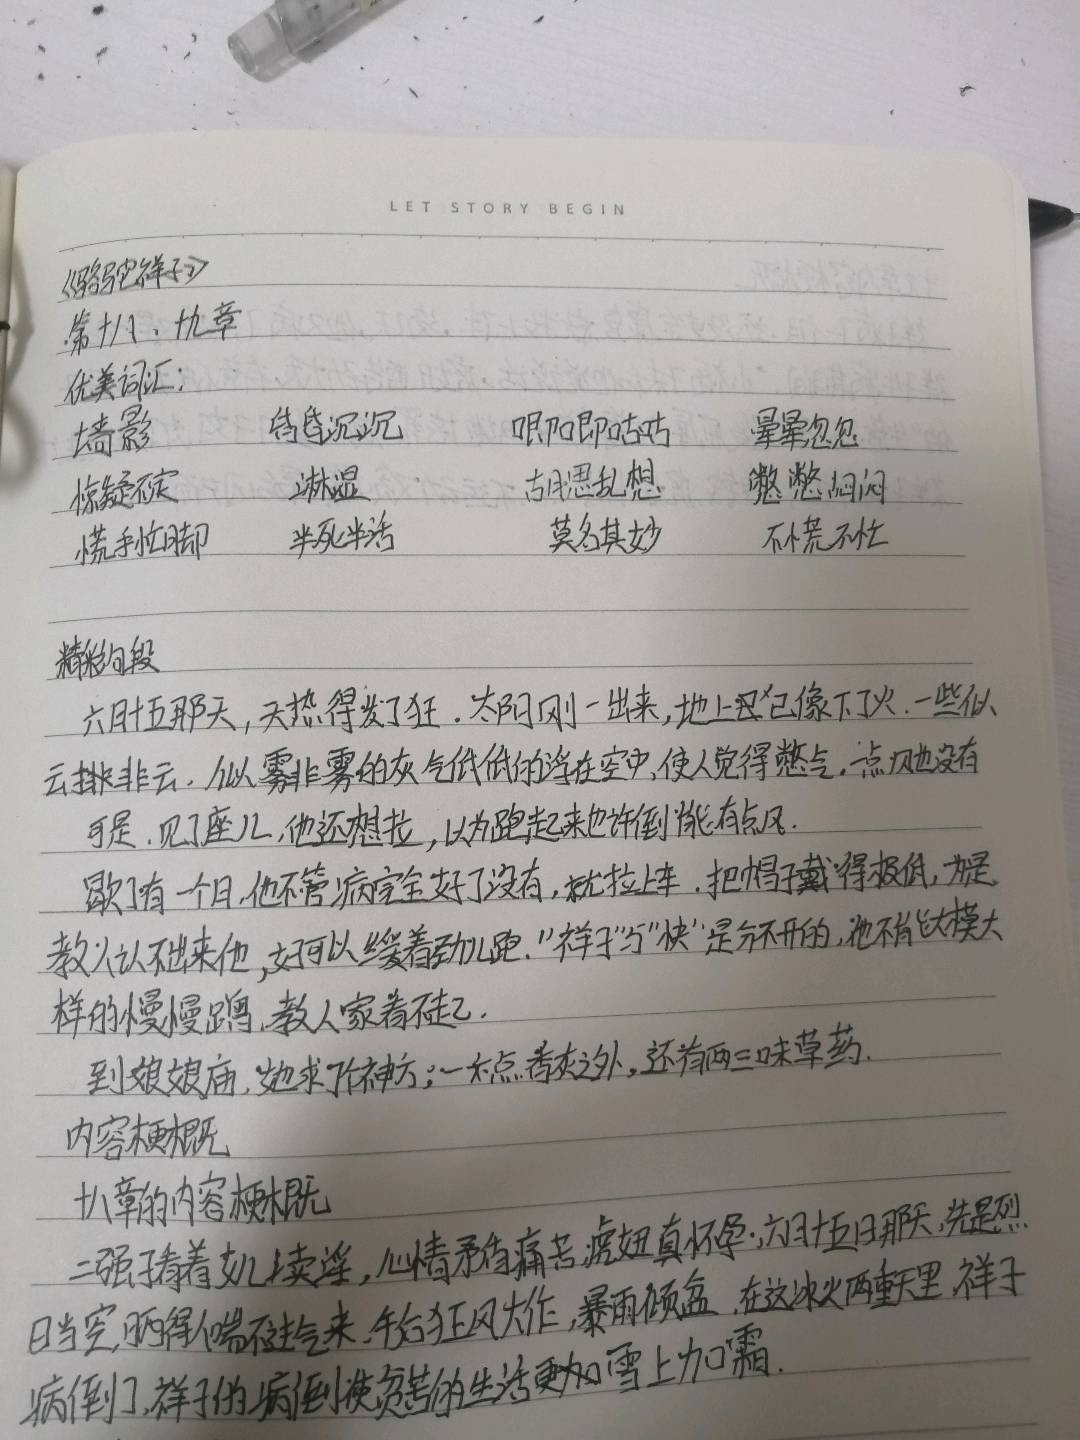 LET STORY BEGIN
《骆驼祥子》
第十八、十九章
优美词汇:
墙影 昏昏沉沉 唧唧咕咕 晕晕忽忽
惊疑不定 淋湿 胡思乱想 憋憋闷闷
慌手忙脚 半死半活 莫名其妙 不慌不忙
精彩句段
六月十五那天,天热得发了狂.太阳刚一出来,地上已像下了火.一些似
云非云.似雾非雾的灰气低低的浮在空中,使人觉得憋气.一点风也没有
可是.见了座儿,他还想拉,以为跑起来也许倒能有点风.
歇了有一个月,他不管病完全好了没有,就拉上车.把帽子戴得极低,为是
教人认不出来他,好可以缓着劲儿跑."祥子"与"快"是分不开的,他不能大模大
样的慢慢蹭,教人家看不起.
到娘娘庙,她求了个神方;一点香灰之外,还有两三味草药.
内容梗概
十八章的内容梗概
二强子看着女儿卖淫,心情矛盾痛苦,虎妞真怀孕;六月十五日那天,先是烈
日当空,晒得人喘不过气来.午后狂风大作,暴雨倾盆.在这冰火两重天里,祥子
病倒了,祥子的病倒使贫苦的生活更加雪上加霜.